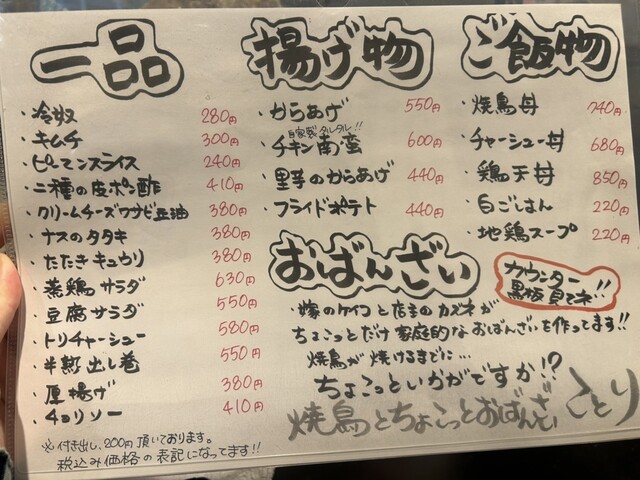 一品
・冷奴 280円
・キムチ 300円
・ピーマンスライス 240円
・二種の皮ポン酢 410円
・クリームチーズワサビ豆油 380円
・ナスのタタキ 380円
・たたきキュウリ 380円
・蒸鶏サラダ 630円
・豆腐サラダ 550円
・トリチャーシュー 580円
・半熟出し巻 550円
・厚揚げ 380円
・チョリソー 410円
※付き出し、200円頂いております。
税込み価格の表記になってます!!
揚げ物
・からあげ 550円
自家製タルタル!!
・チキン南蛮 600円
・里芋のからあげ 440円
・フライドポテト 440円
ご飯物
・焼鳥丼 740円
・チャーシュー丼 680円
・鶏天丼 850円
・白ごはん 220円
・地鶏スープ 220円
おばんざい
カウンター
黒板見てネ!!
・嫁のケイコと店主のカズネが
ちょこっとだけ家庭的なおばんざいを作ってます!!
焼鳥が焼けるまでに…
ちょこっといかがですか!?
焼鳥とちょこっとおばんざい ことり